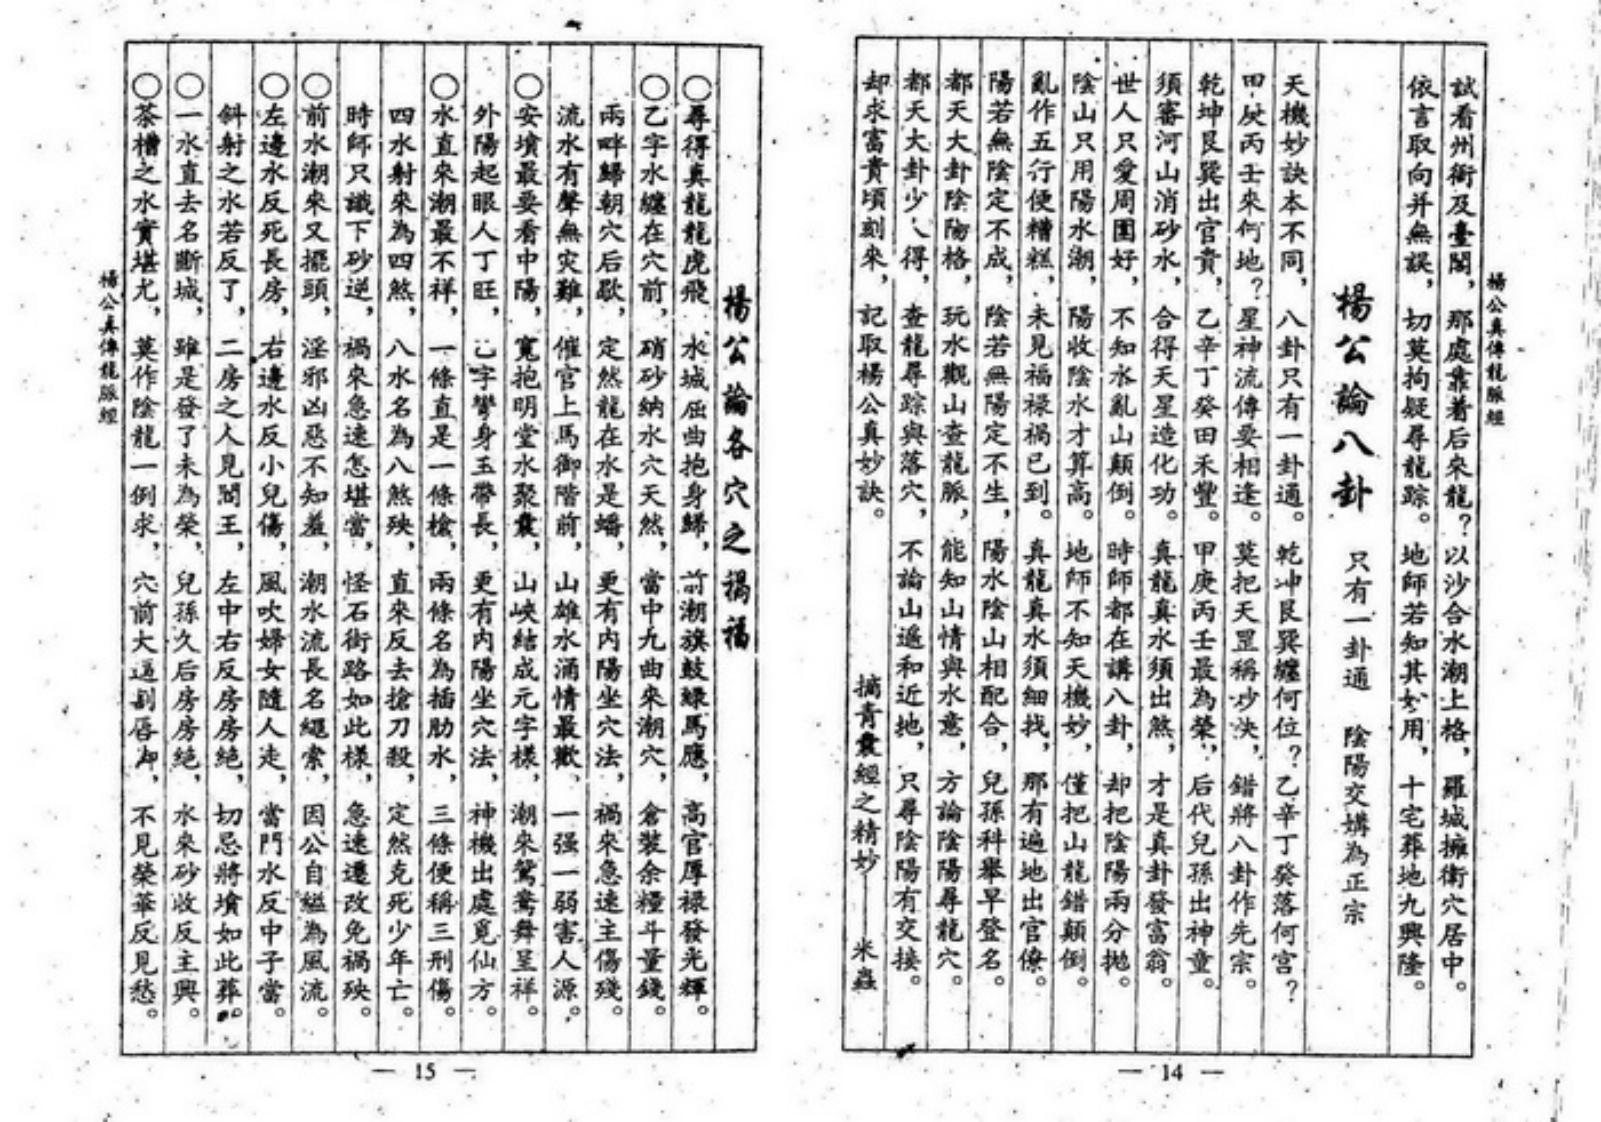 楊公真傳龍脈經
試看州衙及臺閣，那處靠着后來龍？以沙合水潮上格，羅城擁衛穴居中。
依言取向并無誤，切莫拘疑尋龍踪。地師若知其妙用，十宅葬地九興隆。
楊公論八卦　只有一卦通　陰陽交媾為正宗
天機妙訣本不同，八卦只有一卦通。乾坤艮巽纏何位？乙辛丁癸落何宮？
甲庚丙壬來何地？星神流傳要相逢。莫把天罡稱妙決，錯將八卦作先宗。
乾坤艮巽出官貴，乙辛丁癸田禾豐。甲庚丙壬最為榮，后代兒孫出神童。
須審河山消砂水，合得天星造化功。真龍真水須出煞，才是真卦發富翁。
世人只愛周圍好，不知水亂山顛倒。時師都在講八卦，却把陰陽兩分拋。
陰山只用陽水潮，陽收陰水才算高。地師不知天機妙，僅把山龍錯顛倒。
亂作五行便糟糕，未見福禄禍已到。真龍真水須細找，那有遍地出官僚。
陽若無陰定不成，陰若無陽定不生，陽水陰山相配合，兒孫科舉早登名。
都天大卦陰陽格，玩水觀山查龍脈，能知山情與水意，方論陰陽尋龍穴。
都天大卦少人得，查龍尋踪與落穴，不論山遥和近地，只尋陰陽有交接。
却求富貴頃刻來，記取楊公真妙訣。
摘青囊經之精妙——米蟲
— 14 —
楊公論各穴之禍福
○尋得真龍龍虎飛　水城屈曲抱身歸，前潮旗鼓緑馬應，高官厚禄發光輝。
○乙字水纏在穴前，硝砂納水穴天然，當中九曲來潮穴，倉裝余糧斗量錢。
兩畔歸朝穴后歇，定然龍在水是蟠，更有内陽坐穴法，禍來急速主傷殘。
流水有聲無灾難，催官上馬御階前，山雄水涌情最歡、一强一弱害人源。
○安墳最要看中陽，寬抱明堂水聚囊，山峽結成元字樣，潮來鴛鴦舞呈祥。
外陽起眼人丁旺，乙字彎身玉帶長，更有内陽坐穴法，神機出處覓仙方。
○水直來潮最不祥，一條直是一條槍，兩條名為插肋水，三條便稱三刑傷。
四水射來為四煞，八水名為八煞殃，直來反去搶刀殺，定然克死少年亡。
時師只識下砂逆，禍來急速怎堪當，怪石街路如此樣，急速遷改免禍殃。
○前水潮來又擺頭，淫邪凶惡不知羞，潮水流長名繩索，因公自縊為風流。
○左邊水反死長房，右邊水反小兒傷，風吹婦女隨人走，當門水反中子當。
斜射之水若反了，二房之人見閻王，左中右反房房絕，切忌將墳如此葬。
○一水直去名斷城，雖是發了未為榮，兒孫久后房房絕，水來砂收反主興。
○茶槽之水實堪尤，莫作陰龍一例求，穴前大逼割唇脚，不見榮華反見愁。
楊公真傳龍脈經
— 15 —